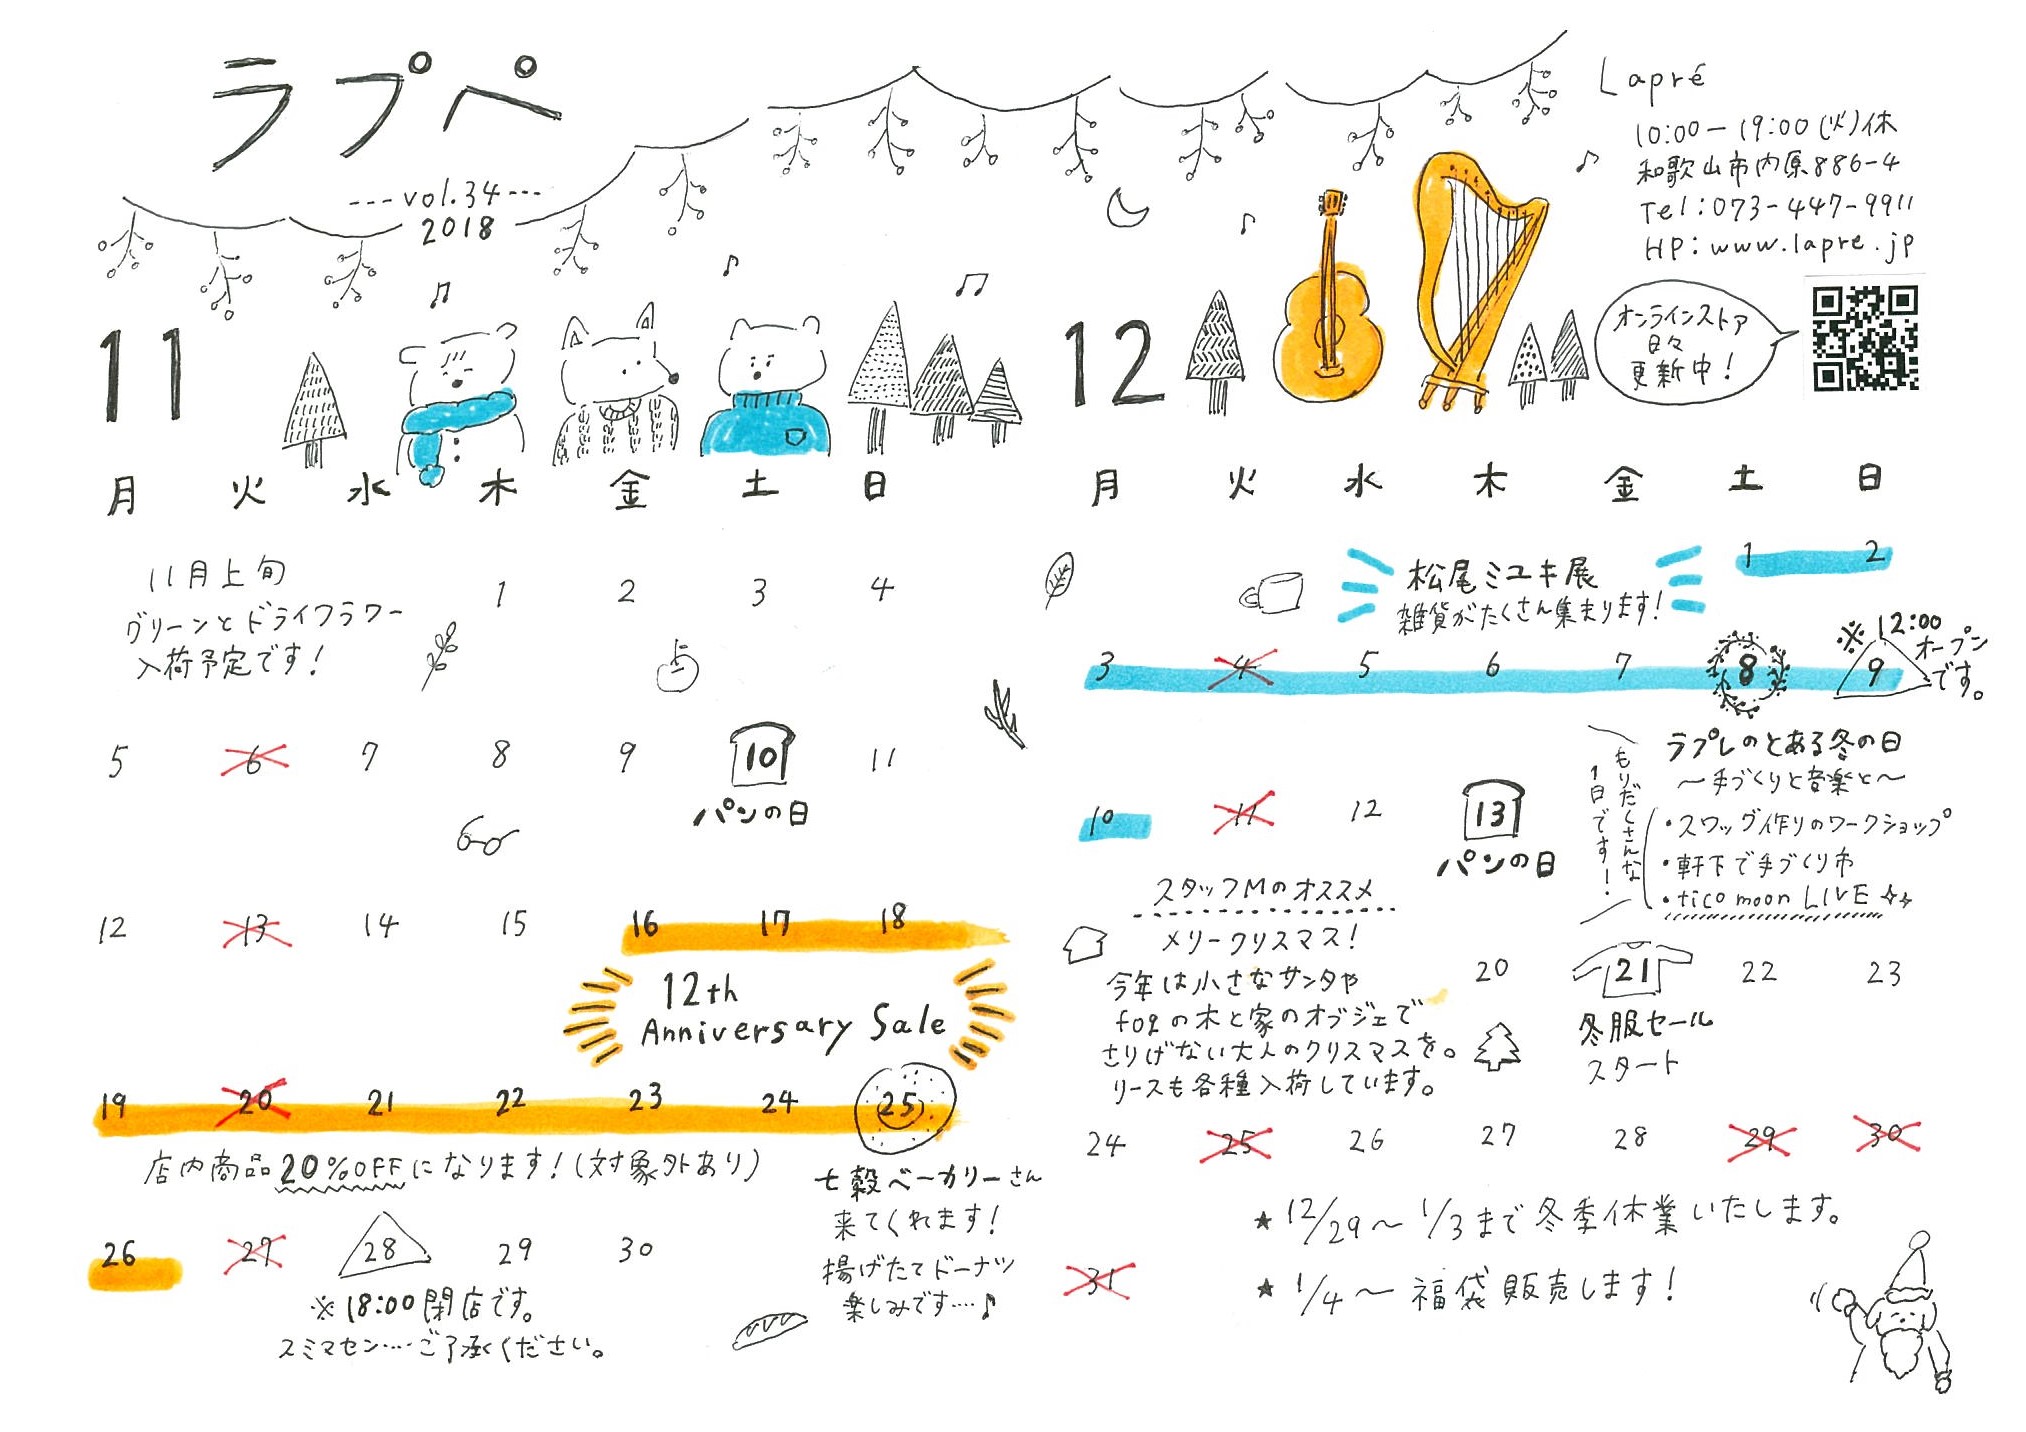 ラプペ
---vol.34---
2018
Lapré
10:00-19:00(火)休
和歌山市内原886-4
Tel:073-447-9911
HP:www.lapre.jp
オンラインストア
日々
更新中!
11
月 火 水 木 金 土 日
11月上旬
グリーンとドライフラワー
入荷予定です!
1 2 3 4
5 6 7 8 9 10 11
パンの日
12 13 14 15 16 17 18
12th
Anniversary Sale
19 20 21 22 23 24 25
店内商品20%OFFになります!(対象外あり)
七穀ベーカリーさん
来てくれます!
揚げたてドーナツ
楽しみです…♪
26 27 28 29 30
※18:00閉店です。
スミマセン…ご了承ください。
12
月 火 水 木 金 土 日
松尾ミユキ展
雑貨がたくさん集まります!
1 2
3 4 5 6 7 8 9
※12:00
オープン
です。
ラプレのとある冬の日
~手づくりと音楽と~
・スワッグ作りのワークショップ
・軒下で手づくり市
・tico moon LIVE
もりだくさんな
1日です!
10 11 12 13
パンの日
スタッフMのオススメ
メリークリスマス!
今年は小さなサンタや
fogの木と家のオブジェで
さりげない大人のクリスマスを。
リースも各種入荷しています。
20 21 22 23
冬服セール
スタート
24 25 26 27 28 29 30
★12/29~1/3まで冬季休業いたします。
31
★1/4~福袋販売します!